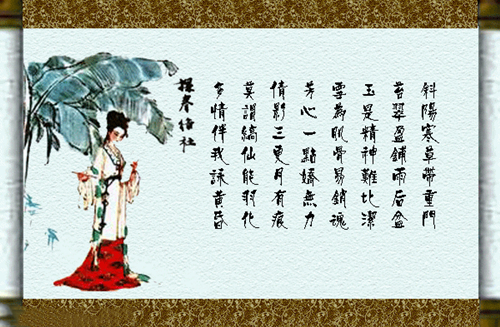 斜陽寒草帶重門
苔翠盈鋪雨后盆
玉是精神難比潔
雪為肌骨易銷魂
芳心一點嬌無力
倩影三更月有痕
莫謂縞仙能羽化
多情伴我詠黃昏
探春結社